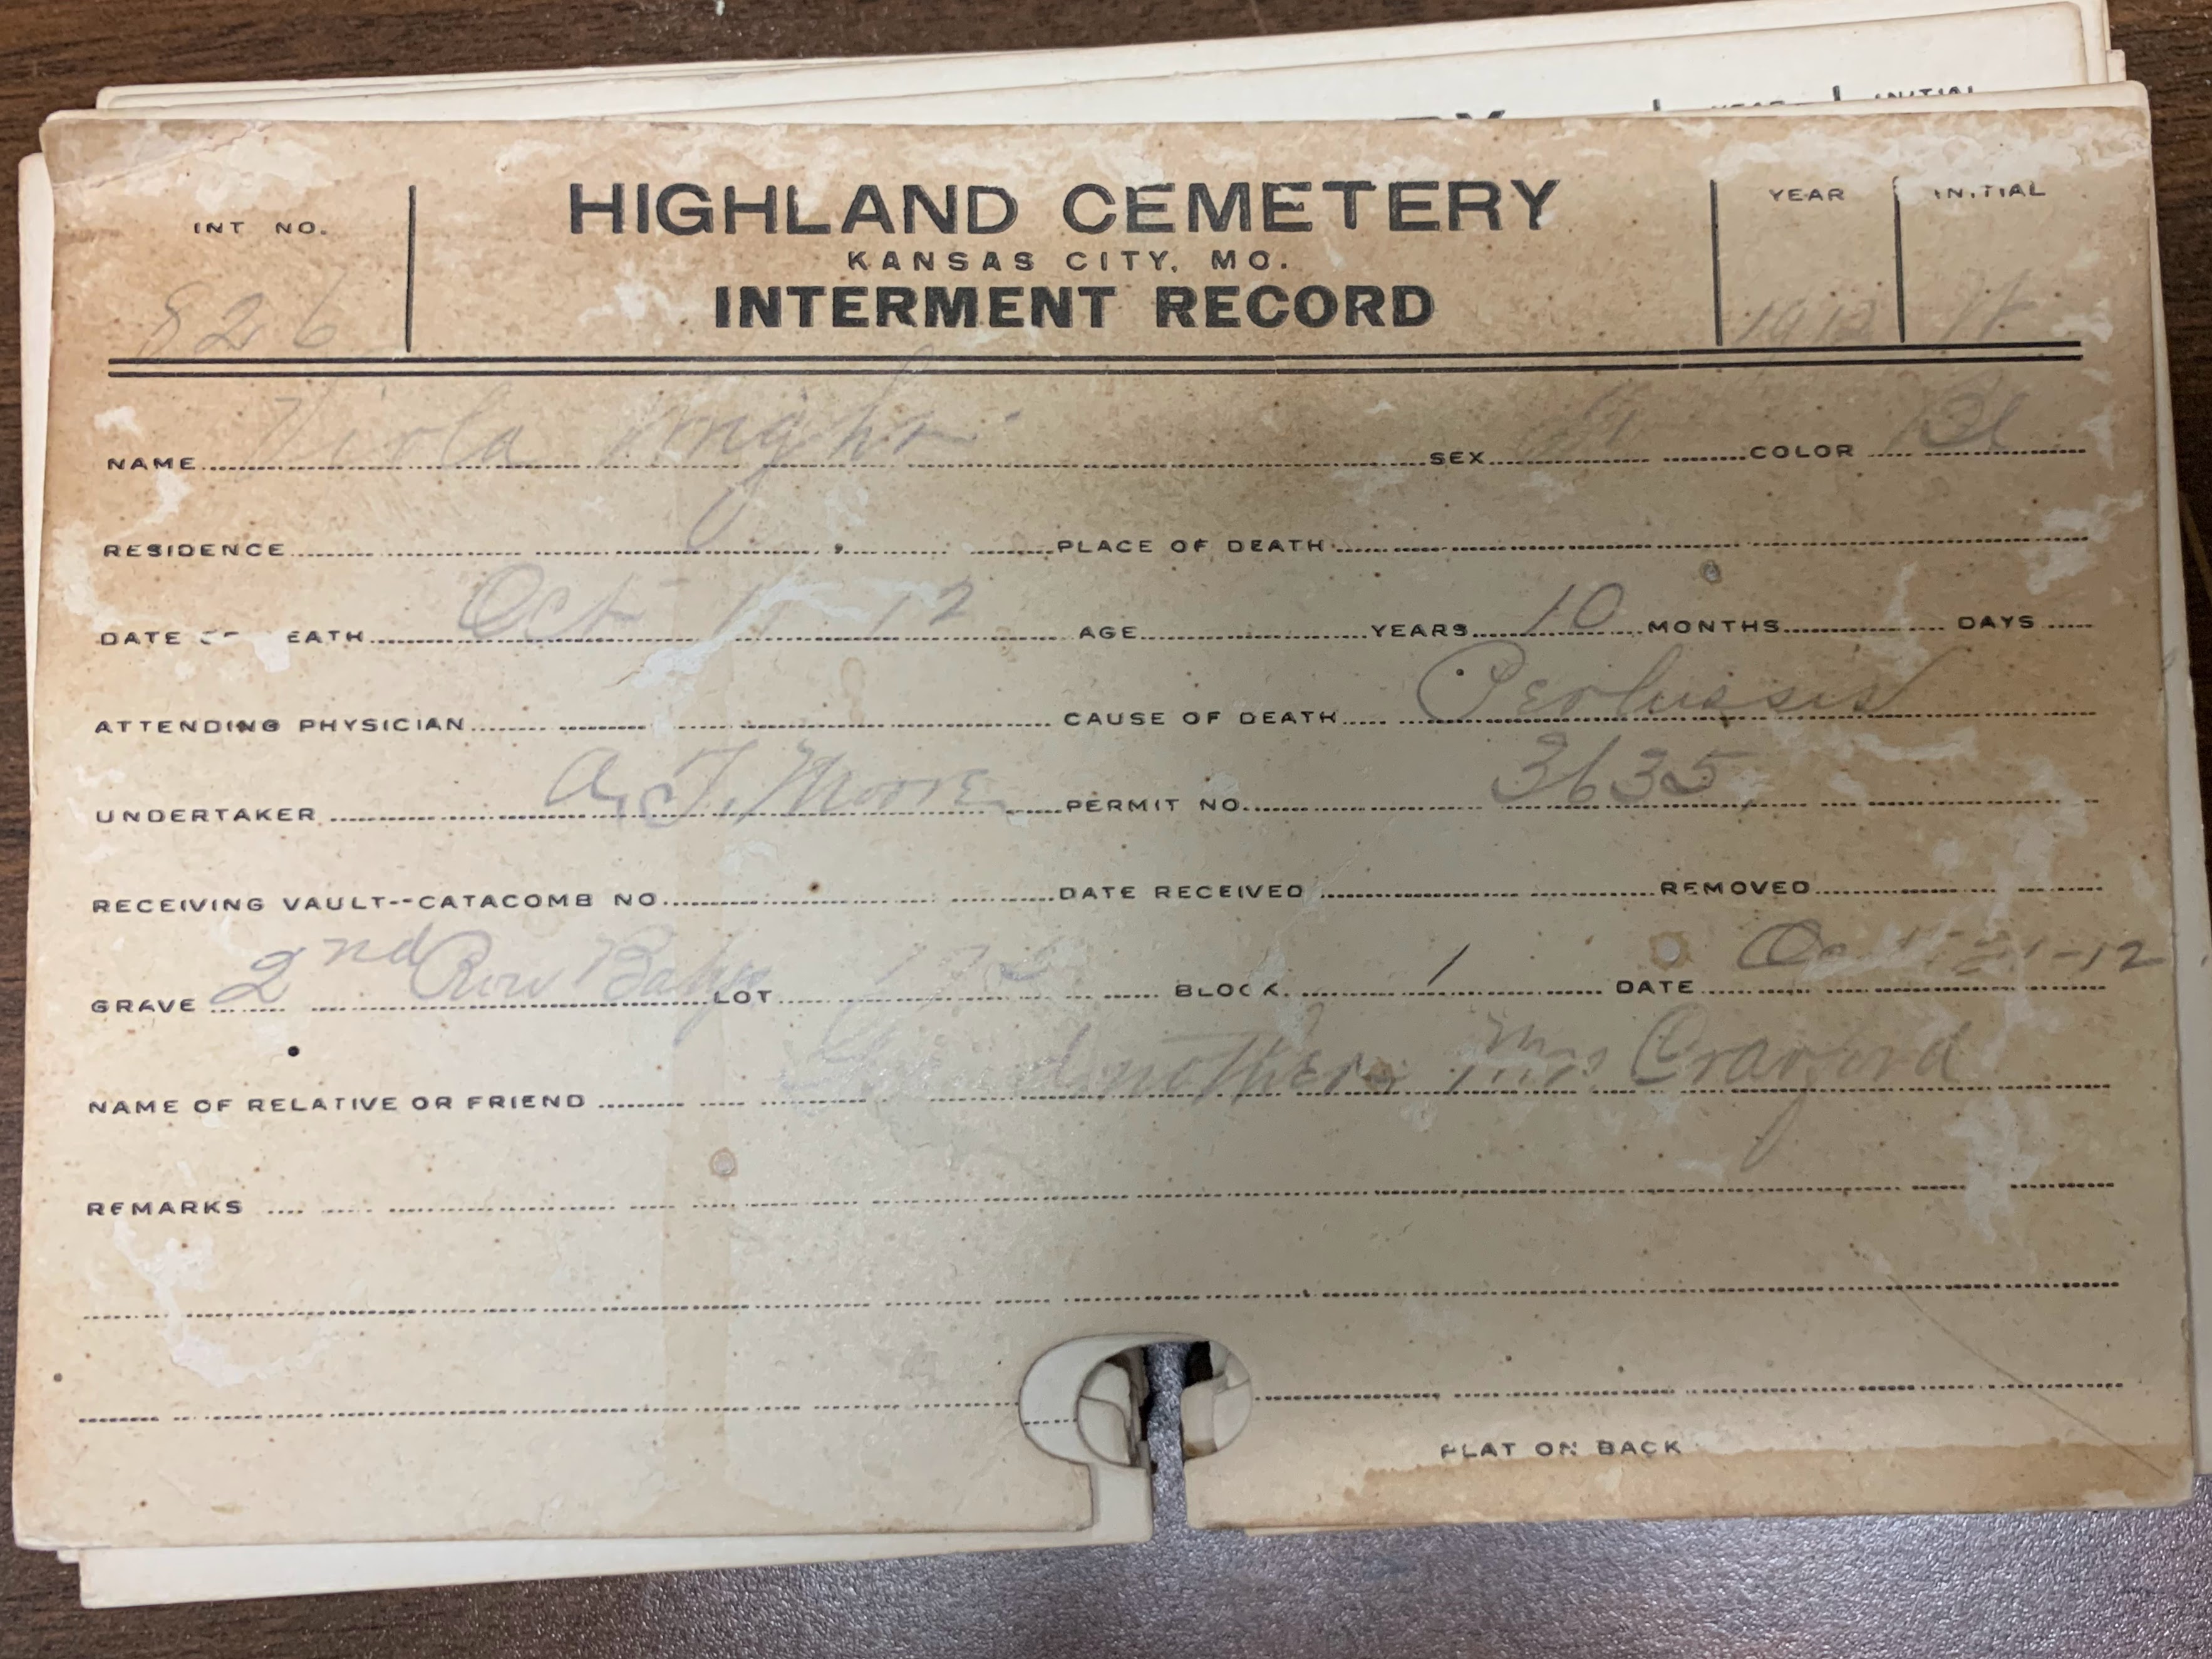 INT NO. HIGHLAND CEMETERY YEAR INITIAL
KANSAS CITY, MO.
826 INTERMENT RECORD 1912 W
NAME Viola Wright SEX COLOR Bl
RESIDENCE PLACE OF DEATH
DATE OF DEATH Oct 12 AGE YEARS 10 MONTHS DAYS
ATTENDING PHYSICIAN CAUSE OF DEATH Pertussis
UNDERTAKER A. T. Moore PERMIT NO. 3635
RECEIVING VAULT--CATACOMB NO. DATE RECEIVED REMOVED
GRAVE 2nd Row Babys LOT BLOCK 1 DATE Oct 21-12
NAME OF RELATIVE OR FRIEND Grandmother Mrs Crayford
REMARKS
PLAT ON BACK